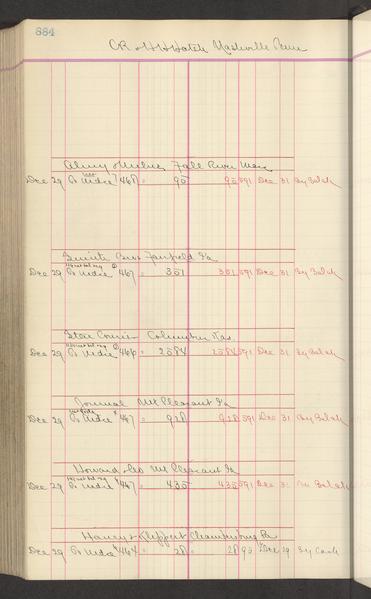 884
C R & H H Hatch Nashville Tenn
Almy & Milne Fall River Mass
Dec 29 To Mdse 468 95 95 591 Dec 31 By Bal ck
Bros Fairfield Ia
Dec 29 To Mdse 467 351 351 591 Dec 31 By Bal ck
Star Courier Columbus Kas
Dec 29 To Mdse 466 2584 2584 591 Dec 31 By Bal ck
Journal Mt Pleasant Ia
Dec 29 To Mdse 467 928 928 591 Dec 31 By Bal ck
Howard & Co Mt Pleasant Ia
Dec 29 To Mdse 467 435 435 591 Dec 31 By Bal ck
Haney & Klippert Chambersburg Pa
Dec 29 To Mdse 464 28 28 93 Dec 29 By Cash